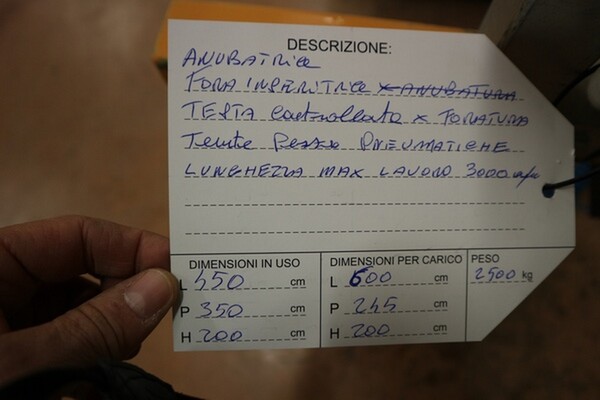 DESCRIZIONE:
ANUBATRICE
FORA INSERITRICE X ANUBATURA
TESTA controllata X FORATURA
Tenute Pezzo PNEUMATICHE
LUNGHEZZA MAX LAVORO 3000 m/m
DIMENSIONI IN USO
L 550 cm
P 350 cm
H 200 cm
DIMENSIONI PER CARICO
L 600 cm
P 245 cm
H 200 cm
PESO
2500 kg